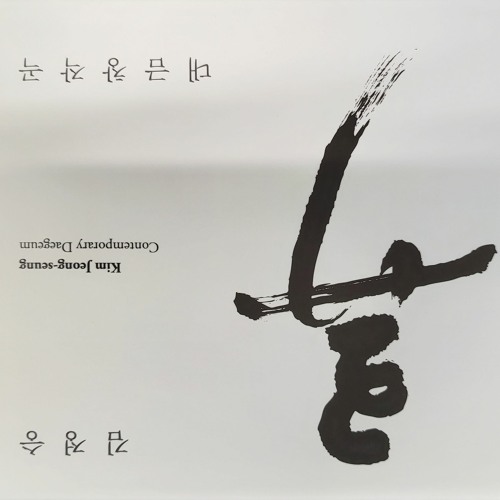 김정승
Kim Jeong-seung
Contemporary Daegeum
대금창작곡